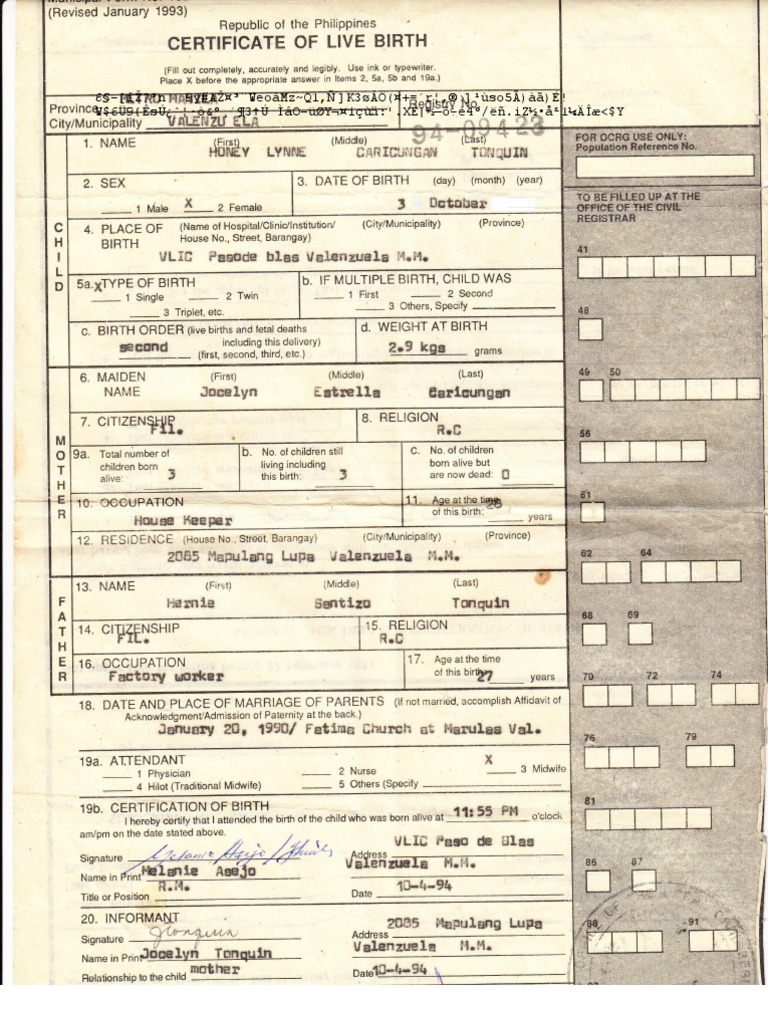 (Revised January 1993)
Republic of the Philippines
CERTIFICATE OF LIVE BIRTH
(Fill out completely, accurately and legibly. Use ink or typewriter.
Place X before the appropriate answer in Items 2, 5a, 5b and 19a.)
Province
Registry No.
City/Municipality VALENZUELA
94-09423
FOR OCRG USE ONLY:
Population Reference No.
TO BE FILLED UP AT THE
OFFICE OF THE CIVIL
REGISTRAR
CHILD
1. NAME (First) (Middle) (Last)
HONEY LYNNE CARICUNGAN TONQUIN
2. SEX
1 Male X 2 Female
3. DATE OF BIRTH (day) (month) (year)
3 October
4. PLACE OF BIRTH (Name of Hospital/Clinic/Institution/ House No., Street, Barangay) (City/Municipality) (Province)
VLIC Pasode blas Valenzuela M.M.
5a. TYPE OF BIRTH
X 1 Single 2 Twin
3 Triplet, etc.
b. IF MULTIPLE BIRTH, CHILD WAS
1 First 2 Second
3 Others, Specify
c. BIRTH ORDER (live births and fetal deaths including this delivery)
second (first, second, third, etc.)
d. WEIGHT AT BIRTH
2.9 kgs grams
MOTHER
6. MAIDEN NAME (First) (Middle) (Last)
Jocelyn Estrella Caricungan
7. CITIZENSHIP
Fil.
8. RELIGION
R.C
9a. Total number of children born alive: 3
b. No. of children still living including this birth: 3
c. No. of children born alive but are now dead: 0
10. OCCUPATION
House Keeper
11. Age at the time of this birth: years
12. RESIDENCE (House No., Street, Barangay) (City/Municipality) (Province)
2085 Mapulang Lupa Valenzuela M.M.
FATHER
13. NAME (First) (Middle) (Last)
Hernie Santizo Tonquin
14. CITIZENSHIP
FIL.
15. RELIGION
R.C
16. OCCUPATION
Factory worker
17. Age at the time of this birth 27 years
18. DATE AND PLACE OF MARRIAGE OF PARENTS (If not married, accomplish Affidavit of
Acknowledgment/Admission of Paternity at the back.)
January 20, 1990/ Fatima Church at Marulas Val.
19a. ATTENDANT
1 Physician 2 Nurse X 3 Midwife
4 Hilot (Traditional Midwife) 5 Others (Specify
19b. CERTIFICATION OF BIRTH
I hereby certify that I attended the birth of the child who was born alive at 11:55 PM o'clock
am/pm on the date stated above.
Signature
VLIC Paso de Blas
Address
Valenzuela M.M.
Name in Print Melanie Asejo
Title or Position R.M.
Date 10-4-94
20. INFORMANT
Signature JTonquin
2085 Mapulang Lupa
Address
Valenzuela M.M.
Name in Print Jocelyn Tonquin
Relationship to the child mother
Date 10-4-94
41
48
49 50
56
61
62 64
68 69
70 72 74
76 79
81
86 87
88 91